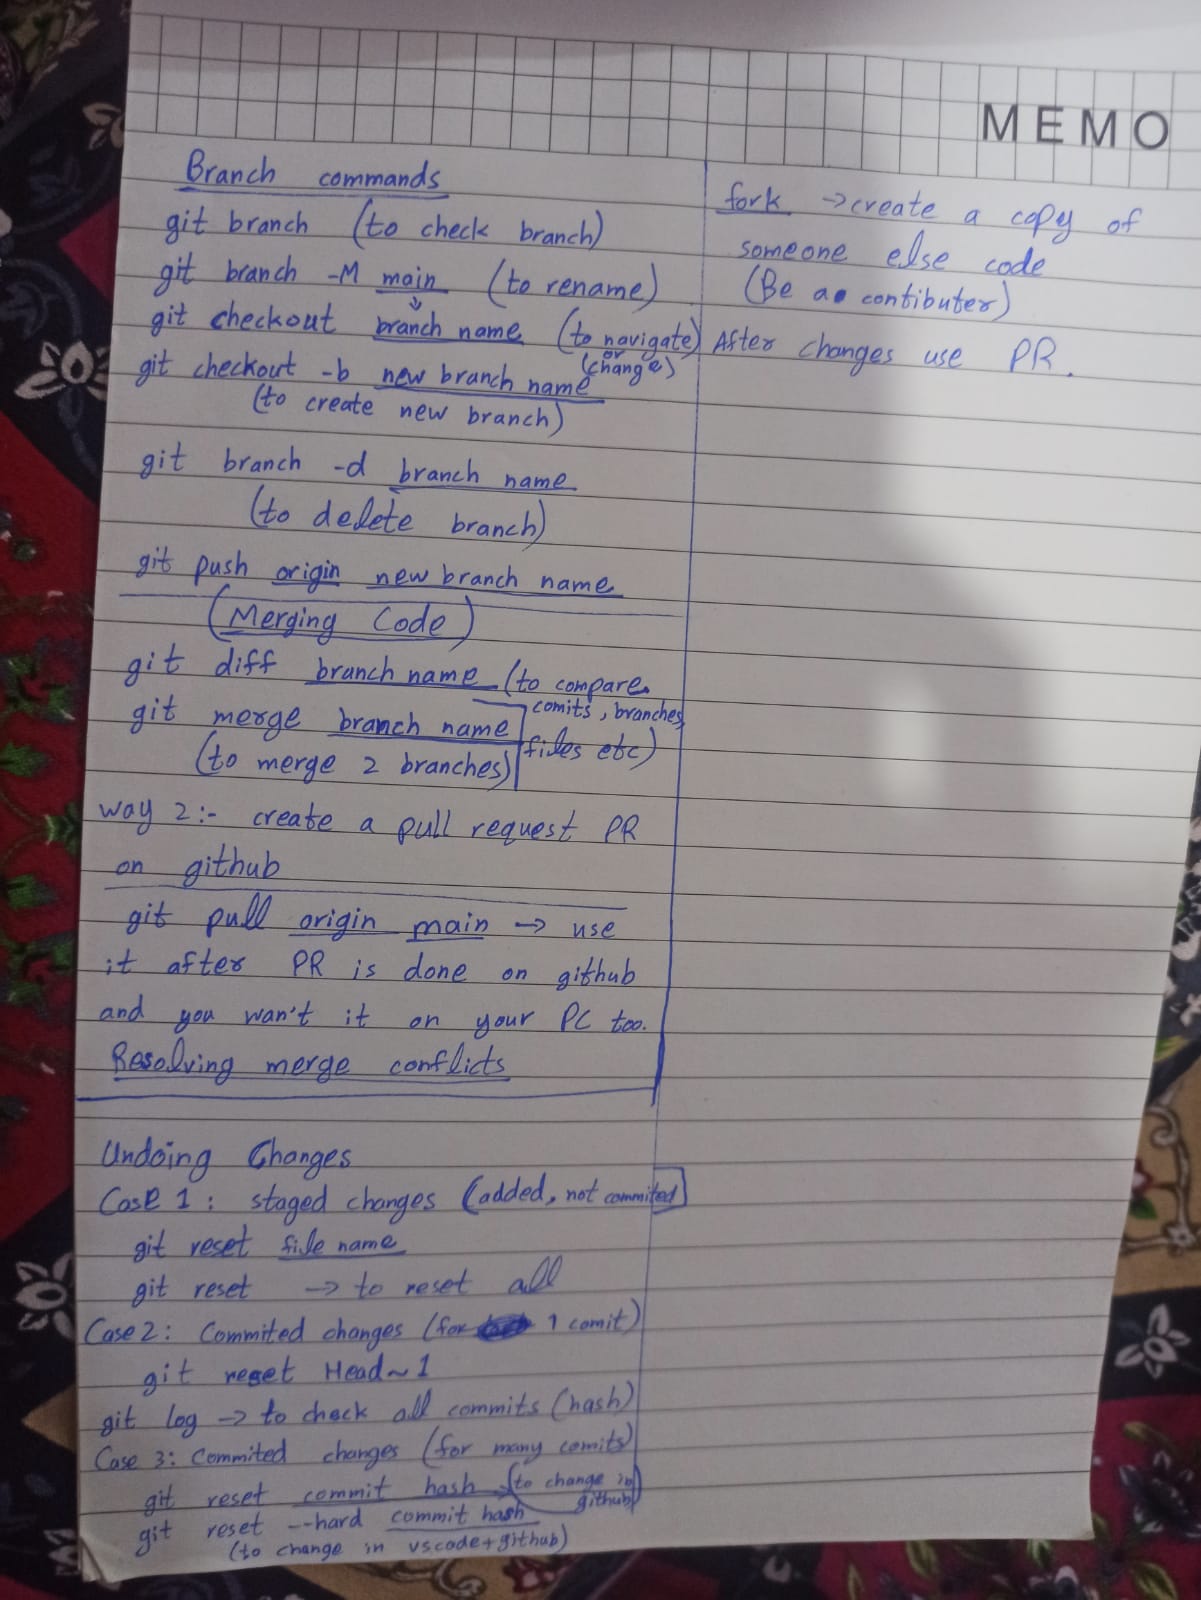 MEMO
Branch commands
git branch (to check branch)
git branch -M main (to rename)
git checkout branch name (to navigate)
or
(change)
git checkout -b new branch name
(to create new branch)
git branch -d branch name
(to delete branch)
git push origin new branch name
(Merging Code)
git diff branch name (to compare
comits, branches,
files etc)
git merge branch name
(to merge 2 branches)
way 2:- create a pull request PR
on github
git pull origin main → use
it after PR is done on github
and you wan't it on your PC too.
Resolving merge conflicts
Undoing Changes
Case 1: staged changes (added, not commited)
git reset file name
git reset → to reset all
Case 2: Commited changes (for 1 comit)
git reset Head~1
git log → to check all commits (hash)
Case 3: Commited changes (for many comits)
git reset commit hash (to change in
github)
git reset --hard commit hash
(to change in vscode+github)
fork → create a copy of
someone else code
(Be a contibuter)
After changes use PR.